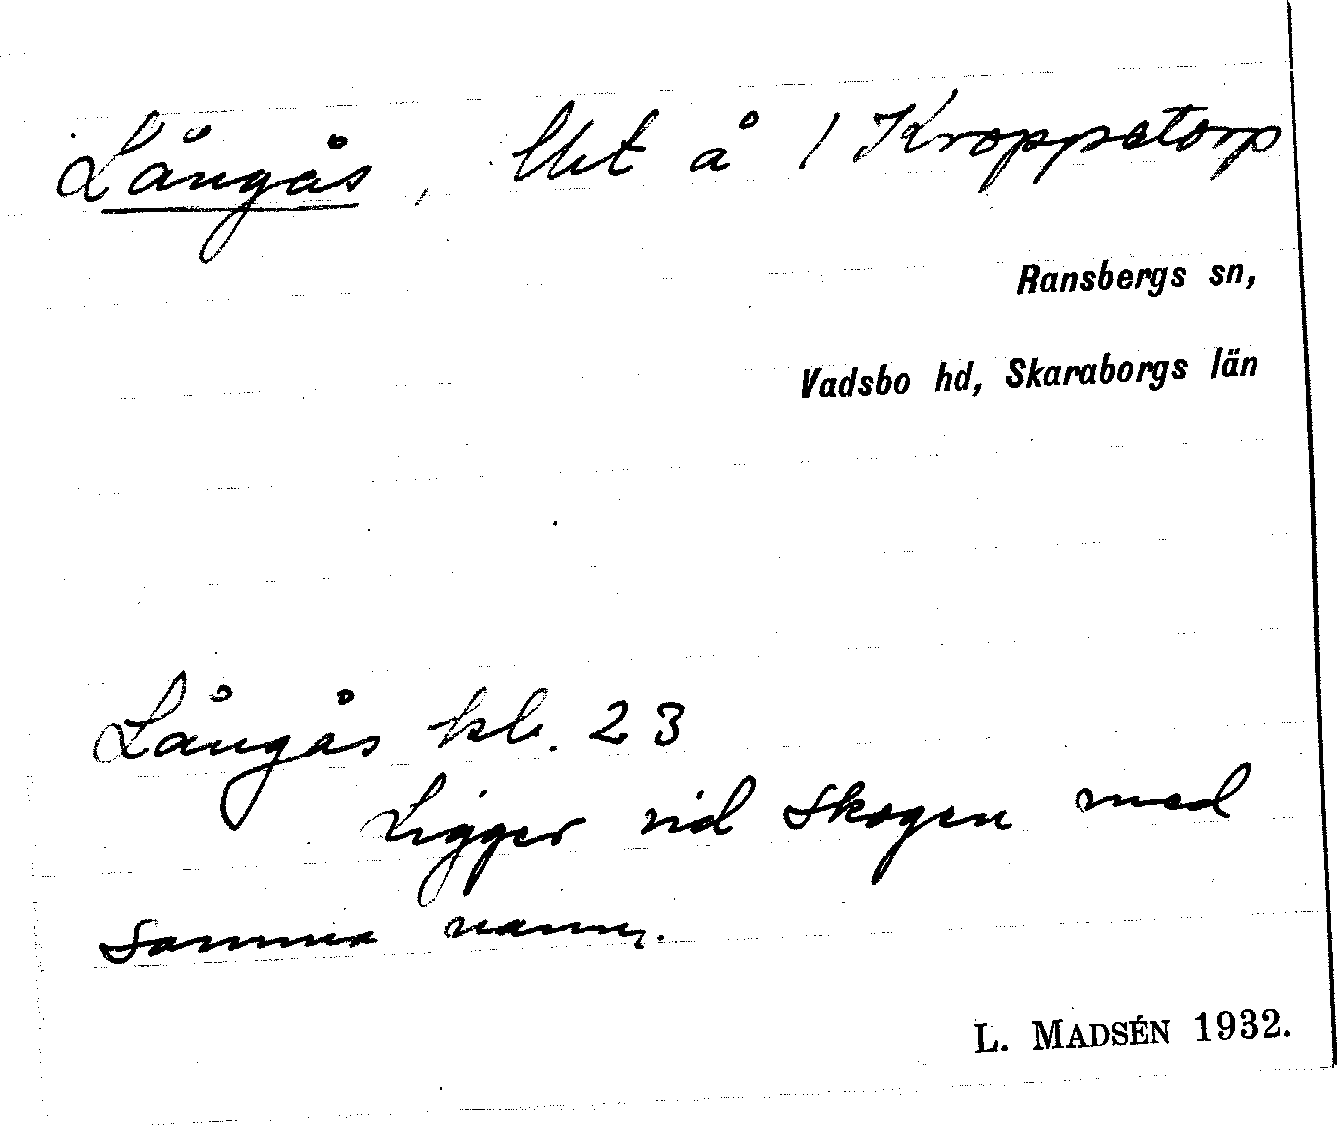 Långås, lht å 1 Kroppstorp
Ransbergs sn,
Vadsbo hd, Skaraborgs län
Långås kl. 23
Ligger vid Skogen med
Samma namn.
L. MADSÉN 1932.